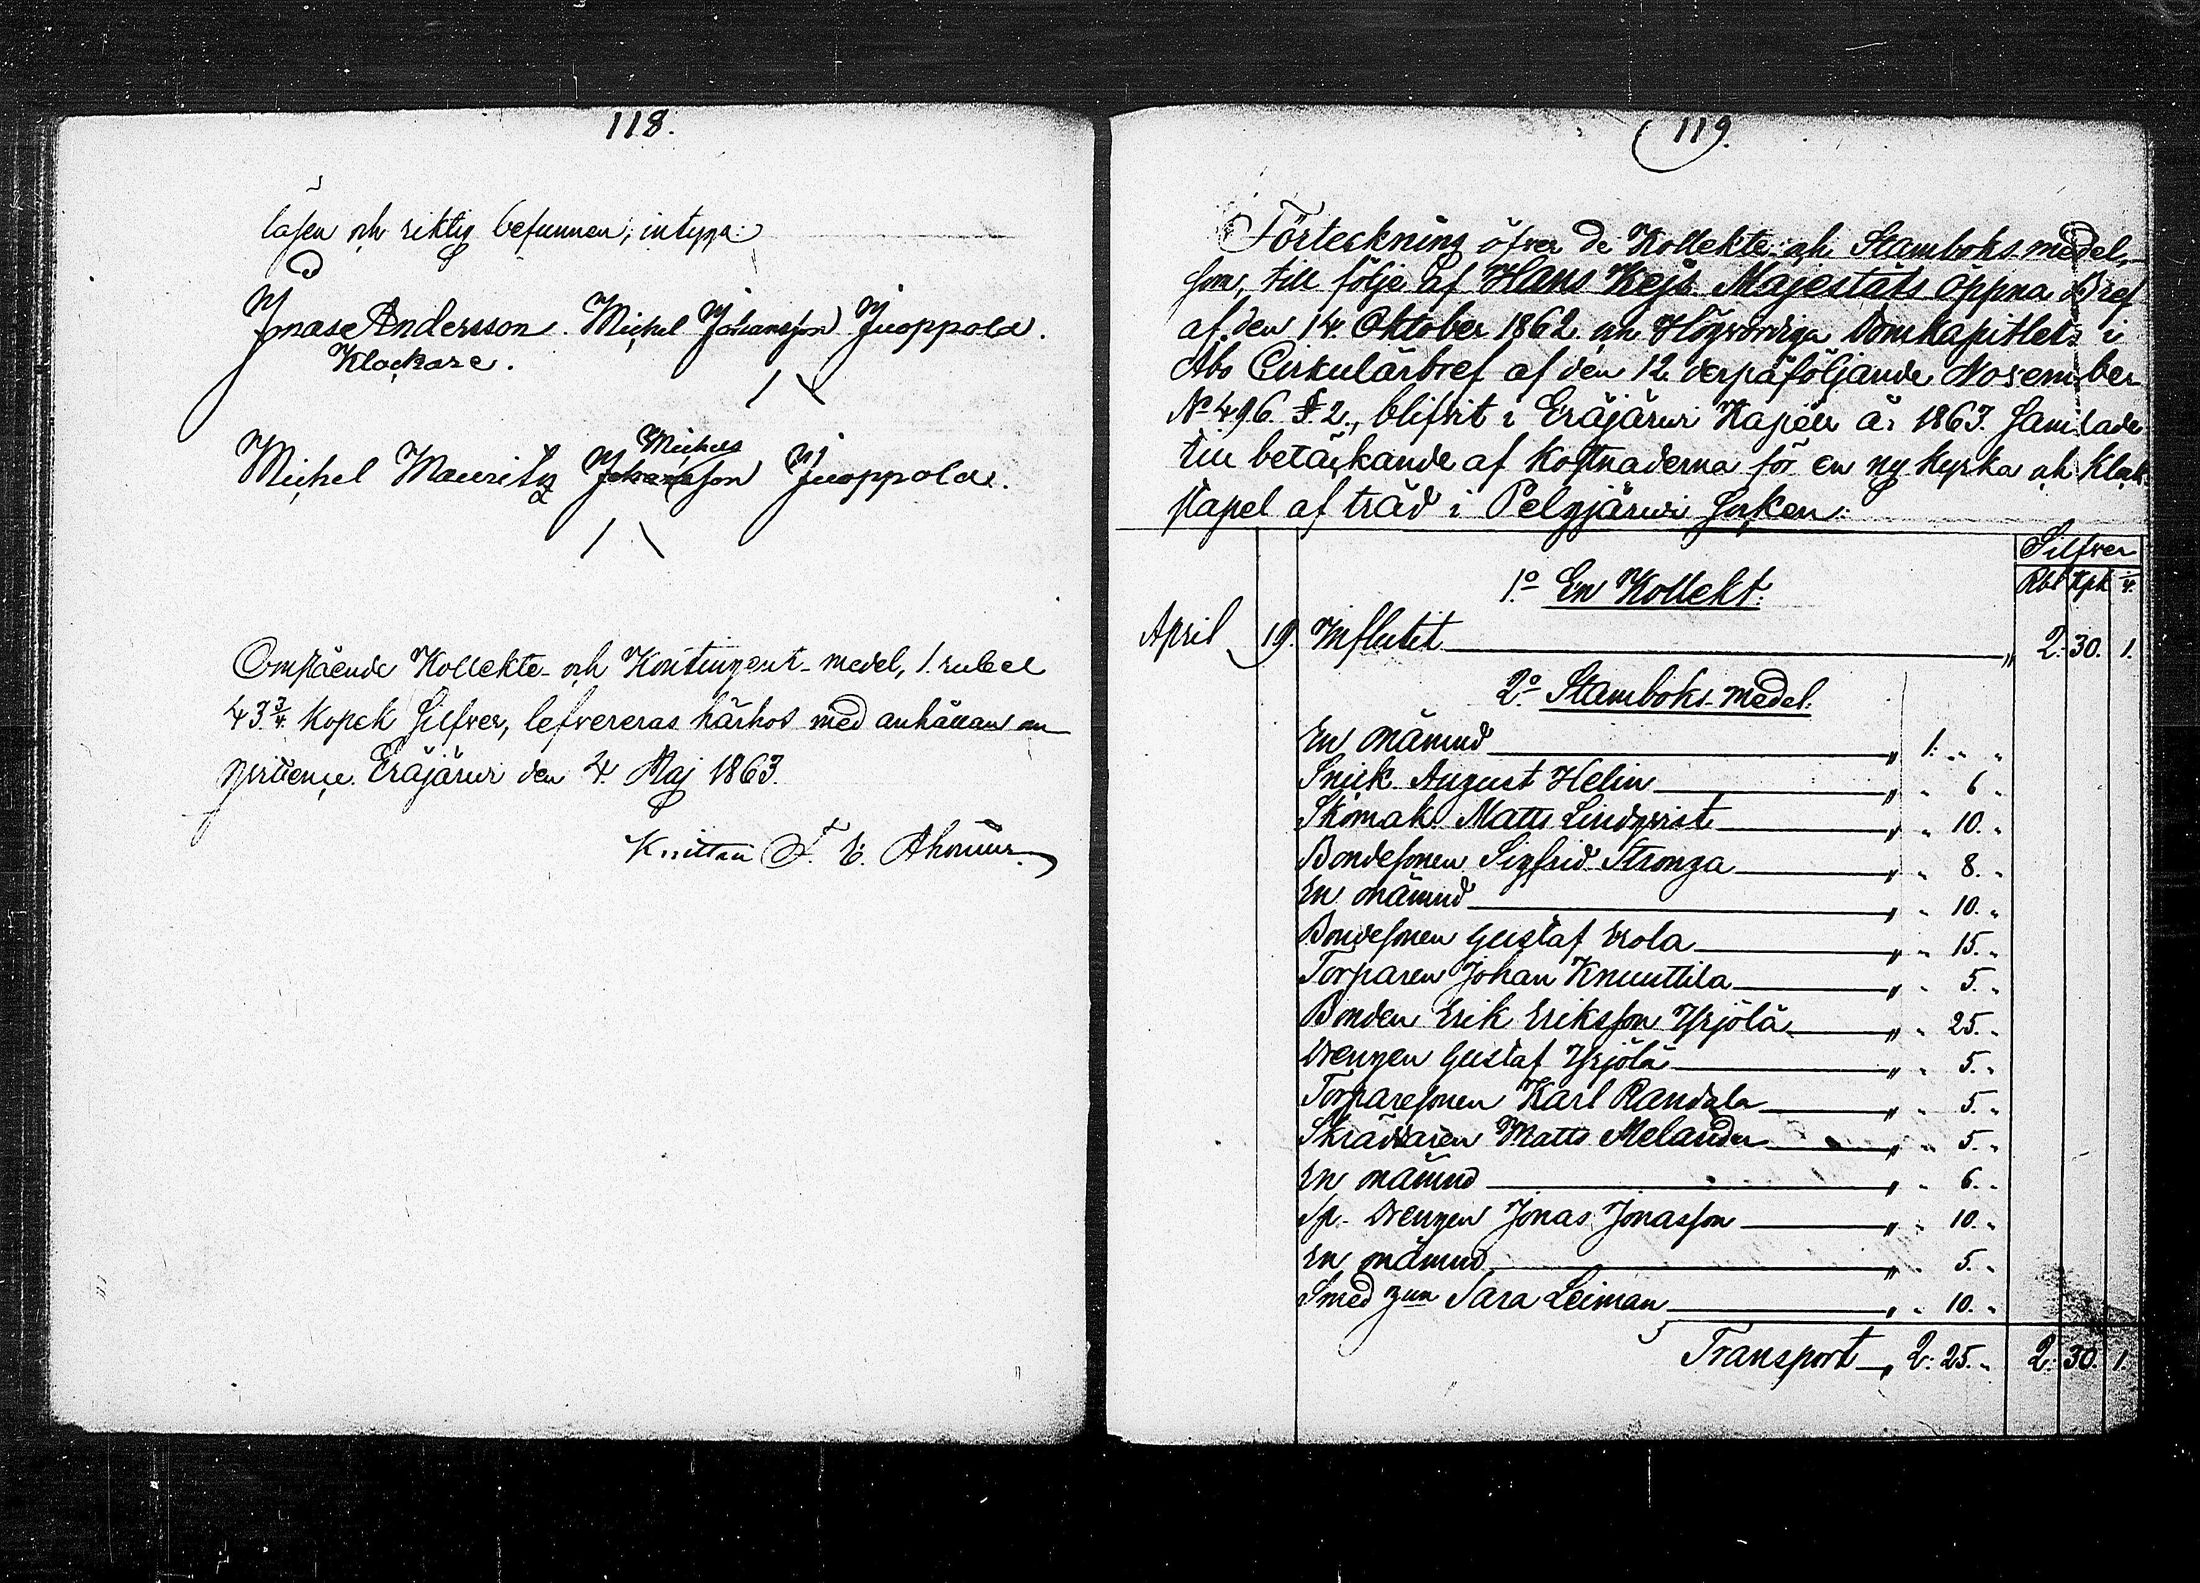 118.
läsen och riktig befunnen, intyga:
Jonas Andersson. Michel Johansson Juoppola.
Klockare.
Michel Mauritz Michels Johansson Juoppola.
Omstående Kollekte- och Kontingent-medel, 1. rubel
43 3/4. Kopek Silfver, lefvereras härhos med anhållan om
qvittence. Eräjärvi den 4. Maj 1863.
F. E.
119.
Förteckning öfver de Kollekte- och Stamboks-medel,
som, till följe af Hans Kejs. Majestäts öppna Bref
af den 14. Oktober 1862. och Högvördiga Domkapitlets i
Åbo Cirkulärbref af den 12. derpåföljande November
No 496. § 2., blifvit i Eräjärvi Kapell år 1863. samlade
till betäckande af kostnaderna för en ny kyrka och klock-
stapel af träd i Pelgjärvi socken:
Silfver
Rbl Kpk 1/4.
1o En Kollekt:
April 19. Influtit " 2: 30. 1.
2o Stamboks-medel:
En onämnd " 1: " "
Snick. August Helin " " 6 "
Skomak. Matts Lindqvist " " 10. "
Bondesonen Sigfrid Stronga " " 8. "
En onämnd " " 10. "
Bondesonen Gustaf Erola " " 15. "
Torparen Johan Knuuttila " " 5. "
Bonden Erik Eriksson Yrjölä " " 25. "
Drengen Gustaf Yrjölä " " 5. "
Torparesonen Karl Randala " " 5. "
Skräddaren Matts Melander " " 5. "
En onämnd " " 6. "
Sp. Drengen Jonas Jonasson " " 10. "
En onämnd " " 5. "
Smed Sara Leiman " " 10. "
Transport " 2: 25. " 2: 30. 1.